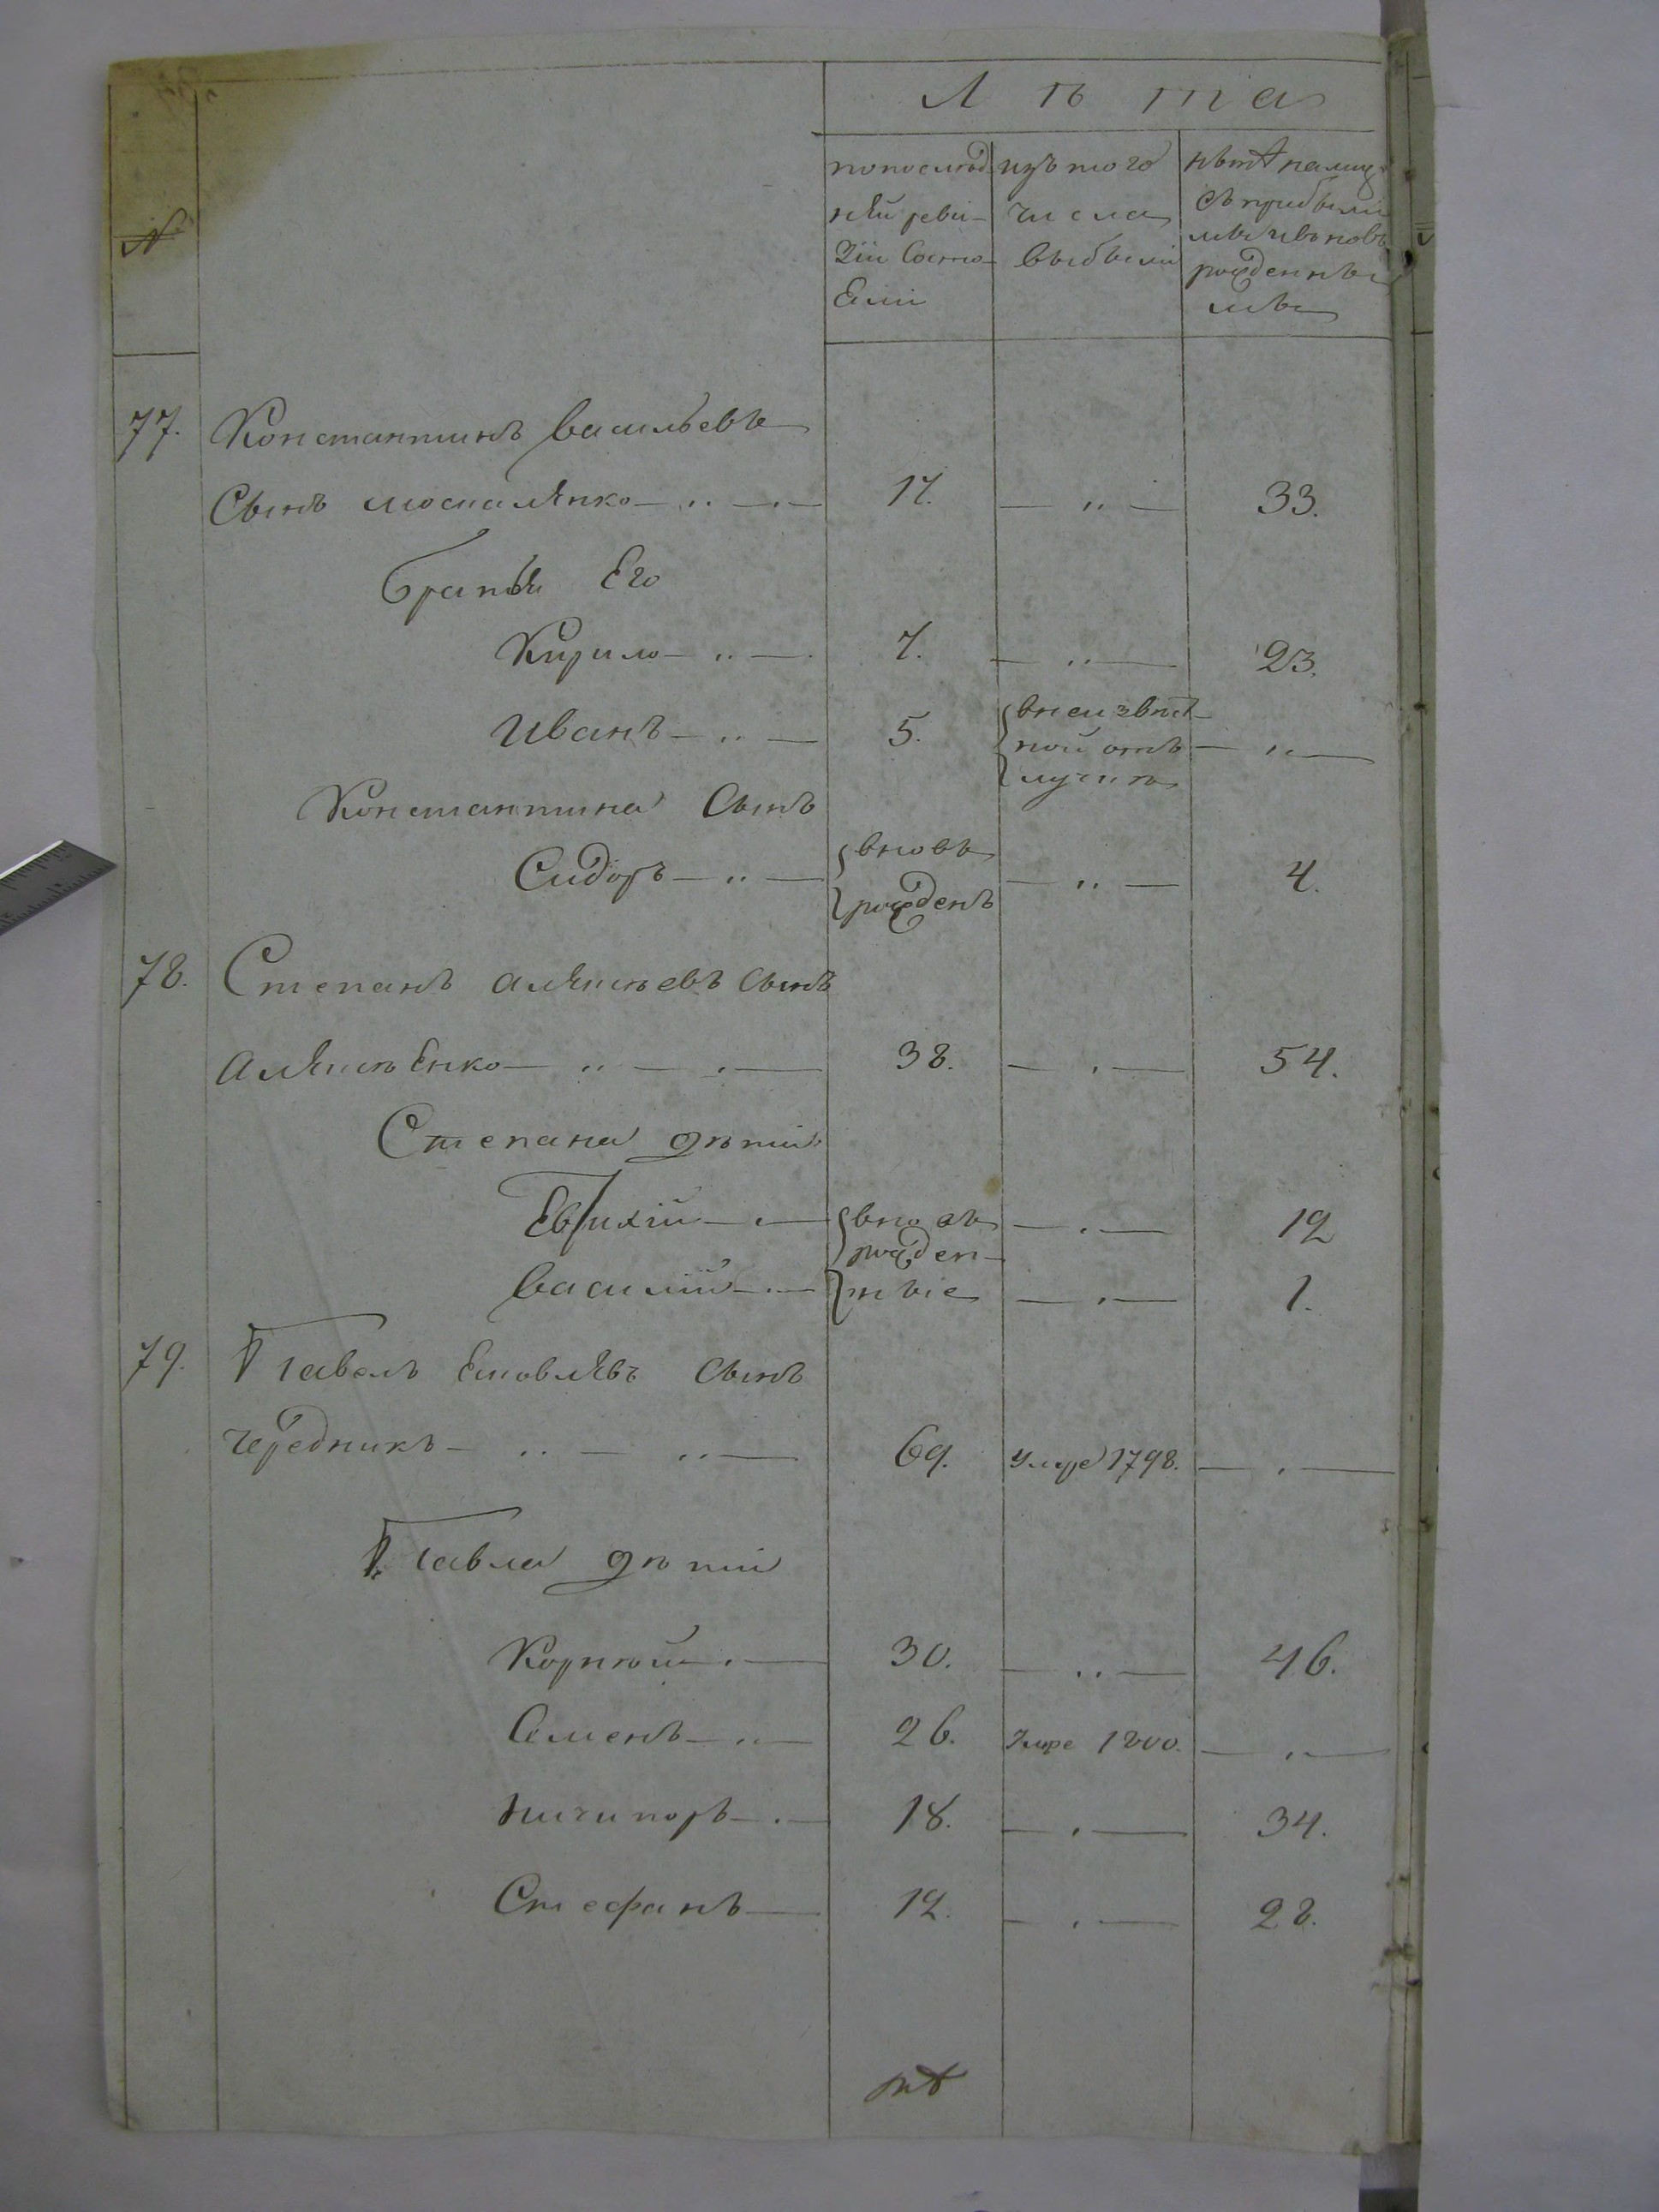 Лѣта
№
попослѣд
ней реви-
зіи Состо-
Ели
изъ того
числа
выбыли
нынѣ налиц
съ прибыли
ми ивновь
рожденны
ми
77. Константинъ васильевъ
Сынъ москаленко 17. 33.
Братья Его
Кирило 7. 23.
Иванъ 5. внеизвѣст
ной отъ
лучкѣ
Константина Сынъ
Сидоръ вновь
рожденъ 4.
78. Степанъ алексѣевъ Сынъ
алексѣЕнко 38. 54.
Степана дѣти
Евтихій вновь 12
рожден-
василій ныіе 1.
79. Павелъ Яковлевъ Сынъ
чередникъ 69. Умре 1798.
Павла дѣти
Корнѣй 30. 46.
Семенъ 26. Умре 1800.
ничипоръ 18. 34.
Стефанъ 12. 28.